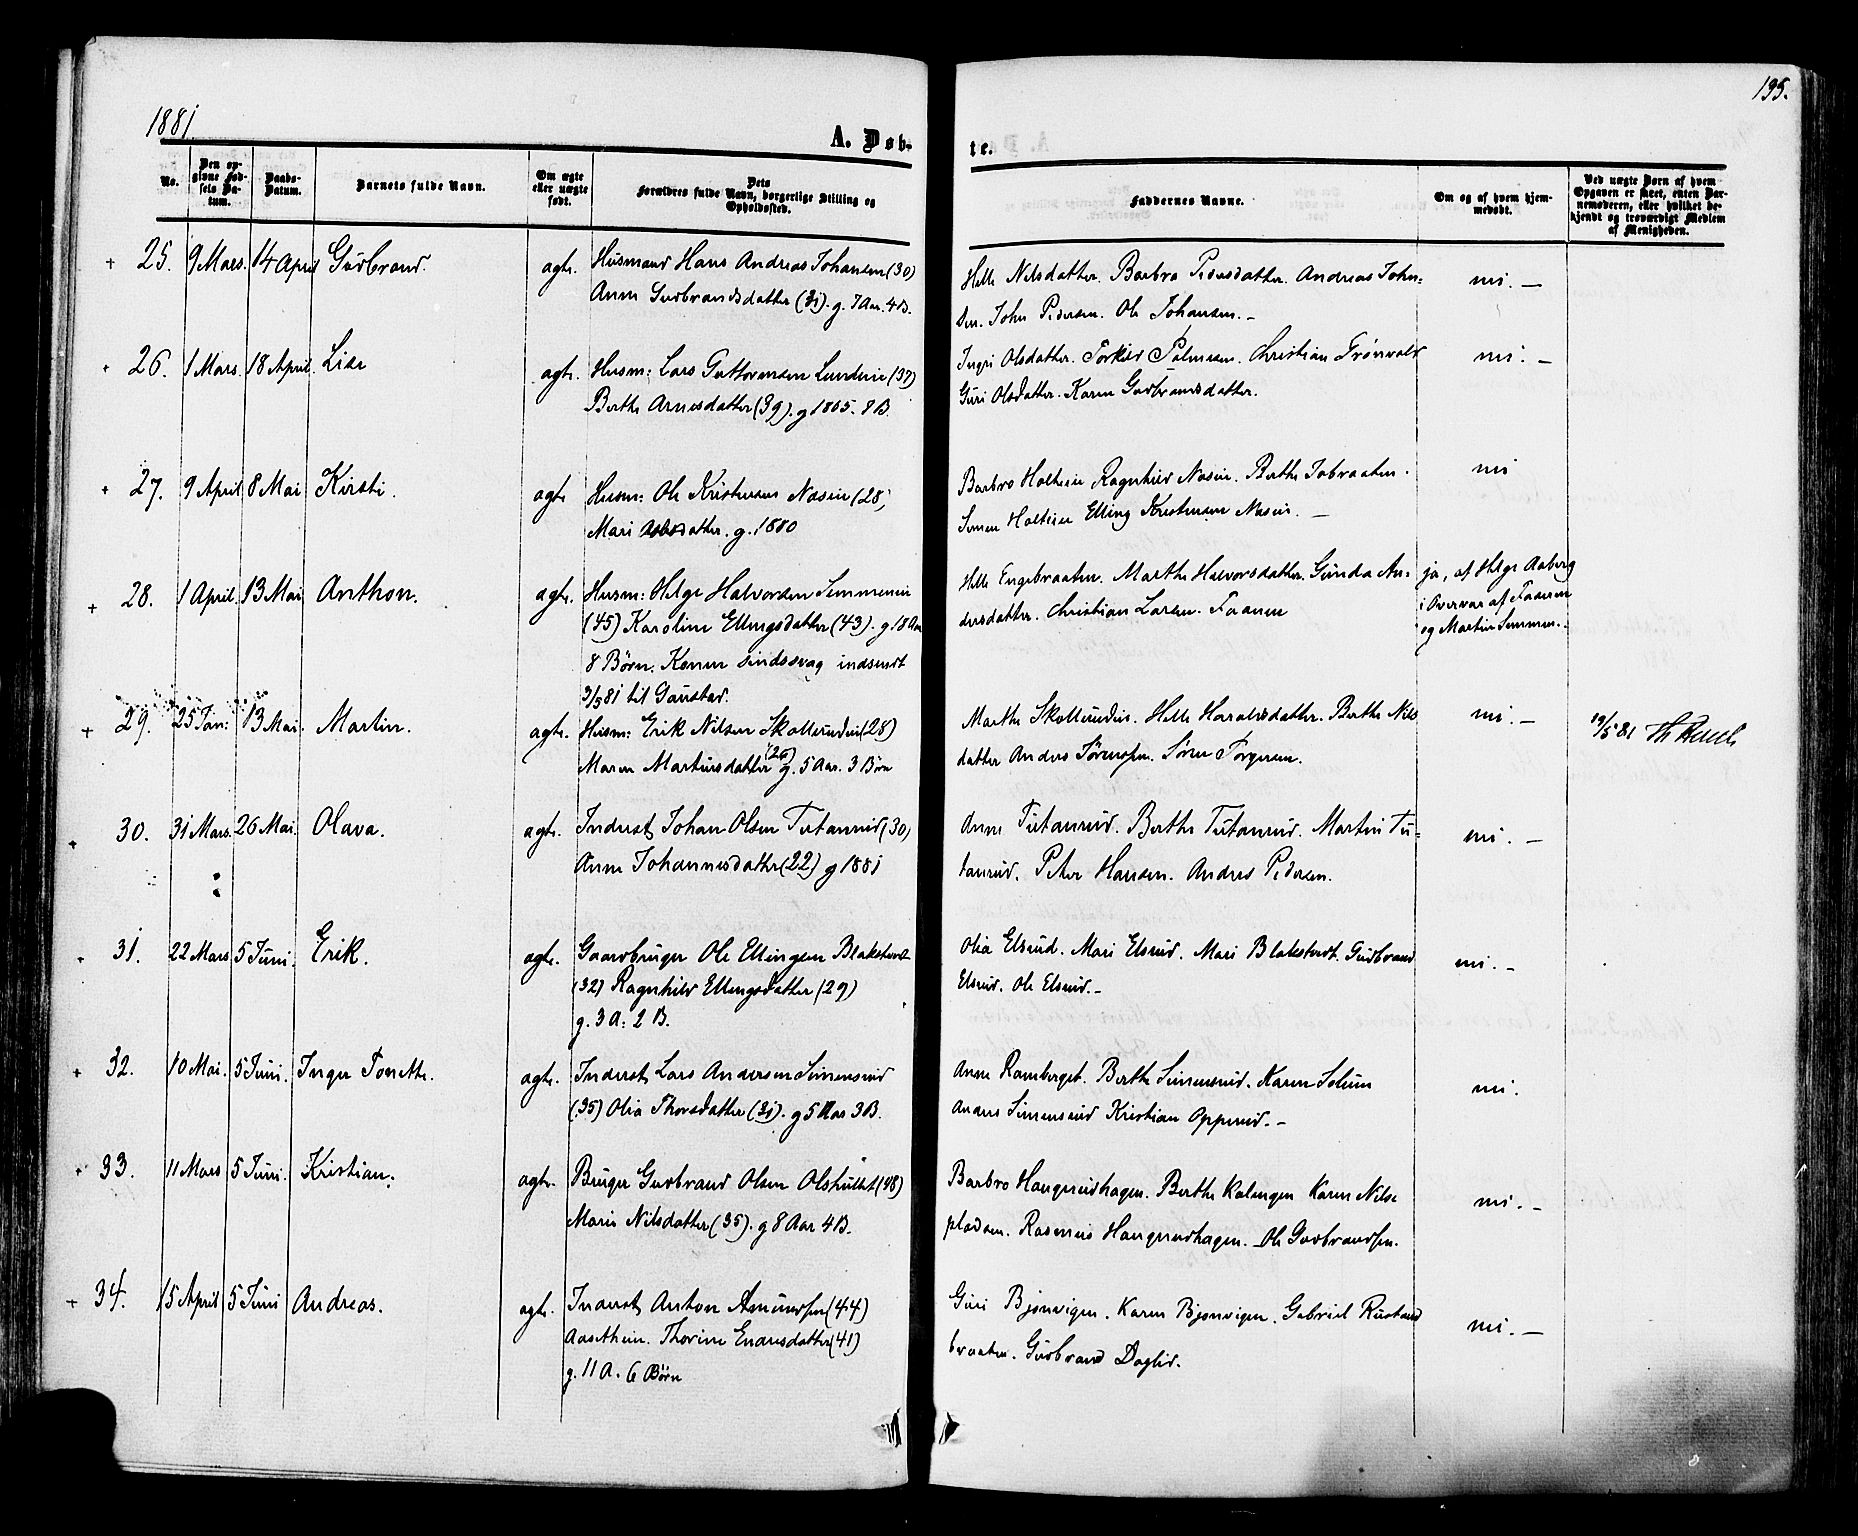 195.
1881.
A. Døb-
te.
No.
Den op-
givne Fød-
sels Da-
tum.
Daabs-
Datum.
Barnets fulde Navn.
Om ægte
eller uægte
født.
Dets
Forældres fulde Navn, borgerlige Stilling og
Opholdssted.
Faddernes Navne.
Om og af hvem hjem-
medøbt.
Ved uægte Børn af hvem
Opgaven er skeet, enten Bar-
nemoderen, eller hvilket be-
kjendt og troværdigt Medlem
af Menigheden.
25. 9 Mars. 14 April Gudbrand. ægte. Husmand Hans Andreas Johansen (30)
Anne Gudbrandsdatter (31). g. 7 Aar. 4 B.
Helle Nilsdatter. Barbro Pedersdatter. Andreas John-
sen. John Pedersen. Ole Johansen. —
nei. —
26. 1 Mars. 18 April. Lise ægte. Husm: Lars Guttormsen Lundeie (37)
Berthe Arnesdatter (39). g 1865. 8 B.
Ingri Olsdatter. Torkild Palmesen. Christian Trønvold
Guri Olsdatter. Karen Gudbrandsdatter.
nei. —
27. 9 April 8 Mai Kirsti. ægte Husm: Ole Kristensen Næseie (28)
Mari datter. g. 1880
Barbro Holteeie Ragnhild Næseie. Berthe braaten.
Simen Holteeie Elling Kristensen Næseie. —
nei
28. 1 April. 13 Mai Anthon. ægte. Husm: Helge Halvorsen Simmeneie
(45) Karoline Ellingsdatter (43). g. 18 Aar
8 Børn. Konen sindssvag indsendt
3/5 81 til Gaustad.
Helle Engebraaten. Marthe Halvorsdatter. Gunda An-
dersdatter. Christian Larsen. Faderen
ja, af Helge Aaberg
i Overvær af Faderen
og Martin Simmen.
29. 25 Jan: 13 Mai. Martin. ægte. Husm: Erik Nilsen Skollerudeie (28)
Maren Martinsdatter (26) g. 5 Aar. 3 Børn
Marthe Skollerudeie. Helle Haraldsdatter. Berthe Nils
datter Anders Sørenssen. Søren Torgersen.
nei. —
19/5 81
30. 31 Mars. 26 Mai. Olava. ægte. Inderst Johan Olsen Tutanrud (30)
Anne Johannesdatter (22) g 1881
Anne Tutanrud. Berthe Tutanrud. Martin Tu-
tanrud. Peter Hansen. Andres Pedersen.
nei. —
31. 22 Mars 5 Juni. Erik. ægte. Gaardbruger Ole Ellingsen Blakstvedt
(32) Ragnhild Ellingsdatter (29)
g. 3 A: 2 B.
Olia Elsrud. Mari Elsrud. Mari Blakstvedt. Gudbrand
Elsrud. Ole Elsrud. —
nei. —
32. 10 Mai. 5 Juni. Inger Tonette. ægte. Inderst Lars Andersen Simensrud
(35) Olia Thorsdatter (31). g 5 Aar 3 B.
Anne Ramberget. Berthe Simensrud. Karen Solum
Anders Simensrud Kristian Opperud. —
nei.
33. 11 Mars 5 Juni. Kristian. ægte. Bruger Gudbrand Olsen Olshullet (48)
Marie Nilsdatter (35). g 8 Aar 4 B.
Barbro Haugerudhagen. Berthe Kolningen Karen Nilse
pladsen. Rasmus Haugerudhagen. Ole Gudbrandsen.
nei. —
34. 15 April 5 Juni Andreas. ægte. Inderst Anton Amundsen (44)
Aasetheie. Thorine Enersdatter (41)
g. 11 A. 6 Børn
Guri Bjønvigen. Karen Bjønvigen. Gabriel Rustand
braaten. Gudbrand Daglid.
nei. —